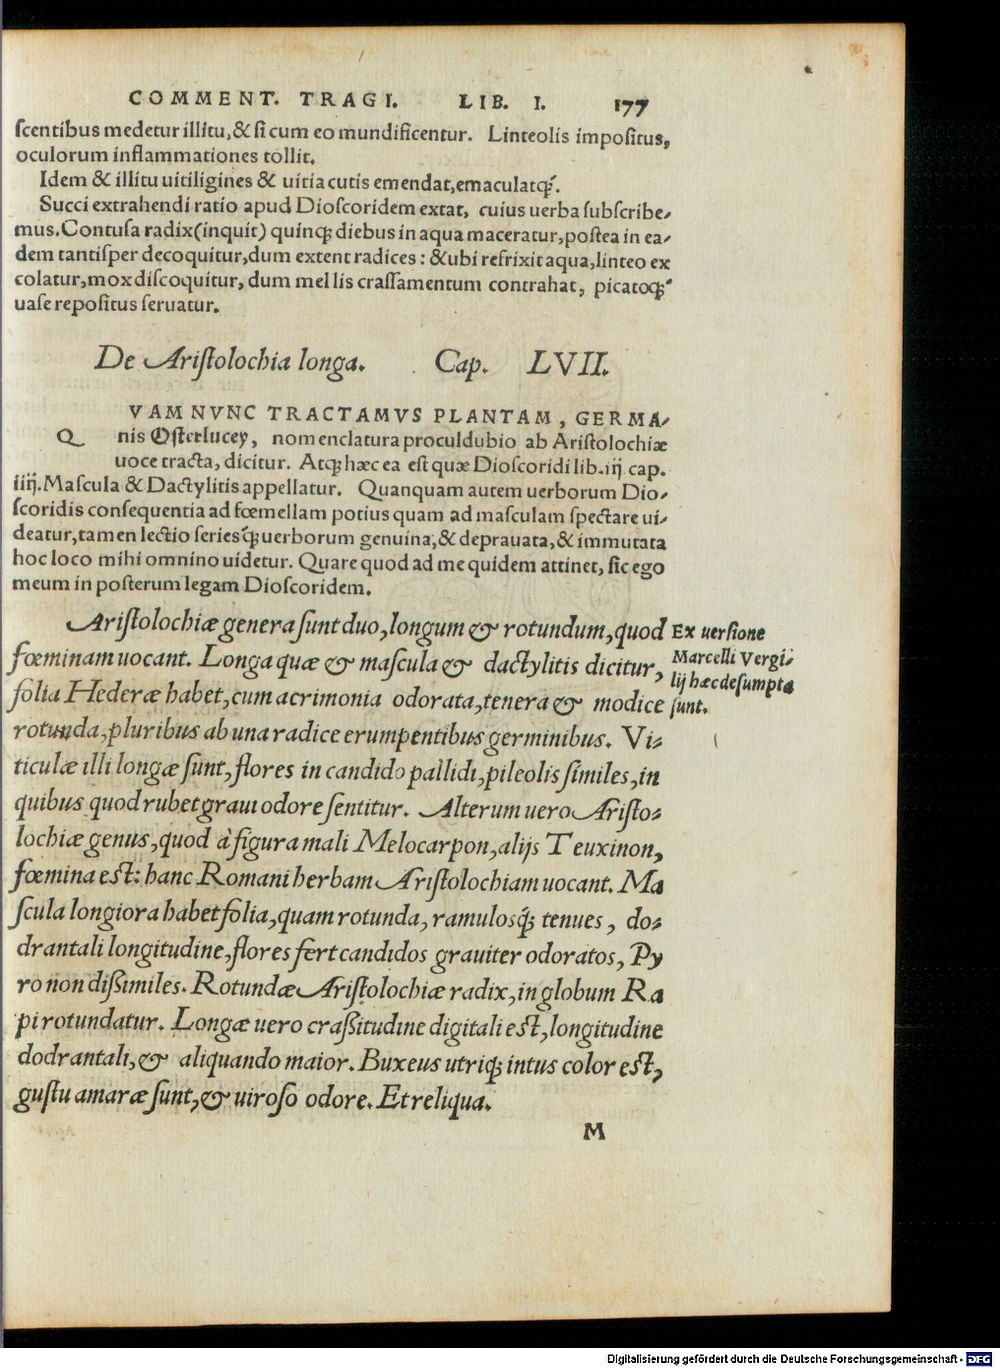 COMMENT. TRAGI. LIB. I. 177
ſcentibus medetur illitu,& ſi cum eo mundificentur. Linteolis impoſitus,
oculorum inflammationes tollit.
Idem & illitu uitiligines & uitia cutis emendat,emaculatq́;.
Succi extrahendi ratio apud Dioſcoridem extat, cuius uerba ſubſcribe⸗
mus.Contuſa radix(inquit) quinq; diebus in aqua maceratur,poſtea in ea⸗
dem tantiſper decoquitur,dum extent radices: & ubi refrixit aqua,linteo ex
colatur,mox diſcoquitur, dum mellis craſſamentum contrahat, picatoq́;
uaſe repoſitus ſeruatur.
De Ariſtolochia longa. Cap. LVII.
QVAM NVNC TRACTAMVS PLANTAM, GERMA⸗
nis Oſterlucey, nomenclatura proculdubio ab Ariſtolochiæ
uoce tracta, dicitur. Atq; hæc ea eſt quæ Dioſcoridi lib.iij cap.
iiij.Maſcula & Dactylitis appellatur. Quanquam autem uerborum Dio⸗
ſcoridis conſequentia ad fœmellam potius quam ad maſculam ſpectare ui⸗
deatur,tamen lectio ſeriesq́; uerborum genuina,& deprauata,& immutata
hoc loco mihi omnino uidetur. Quare quod ad me quidem attinet, ſic ego
meum in poſterum legam Dioſcoridem.
Ariſtolochiæ genera ſunt duo,longum & rotundum,quod
fœminam uocant. Longa quæ & maſcula & dactylitis dicitur,
folia Hederæ habet,cum acrimonia odorata,tenera & modice
rotunda,pluribus ab una radice erumpentibus germinibus. Vi⸗
ticulæ illi longæ ſunt,flores in candido pallidi,pileolis ſimiles,in
quibus quod rubet graui odore ſentitur. Alterum uero Ariſto⸗
lochiæ genus,quod à figura mali Melocarpon,alijs Teuxinon,
fœmina eſt: hanc Romani herbam Ariſtolochiam uocant. Ma
ſcula longiora habet folia,quam rotunda, ramulosq́; tenues, do⸗
drantali longitudine,flores fert candidos grauiter odoratos, Py
ro non diſsimiles. Rotundæ Ariſtolochiæ radix,in globum Ra
pi rotundatur. Longæ uero craſsitudine digitali eſt,longitudine
dodrantali,& aliquando maior. Buxeus utriq; intus color eſt,
guſtu amaræ ſunt,& uiroſo odore. Et reliqua.
Ex uerſione
Marcelli Vergi⸗
lij hæc deſumpta
ſunt.
M
Digitalisierung gefördert durch die Deutsche Forschungsgemeinschaft - DFG